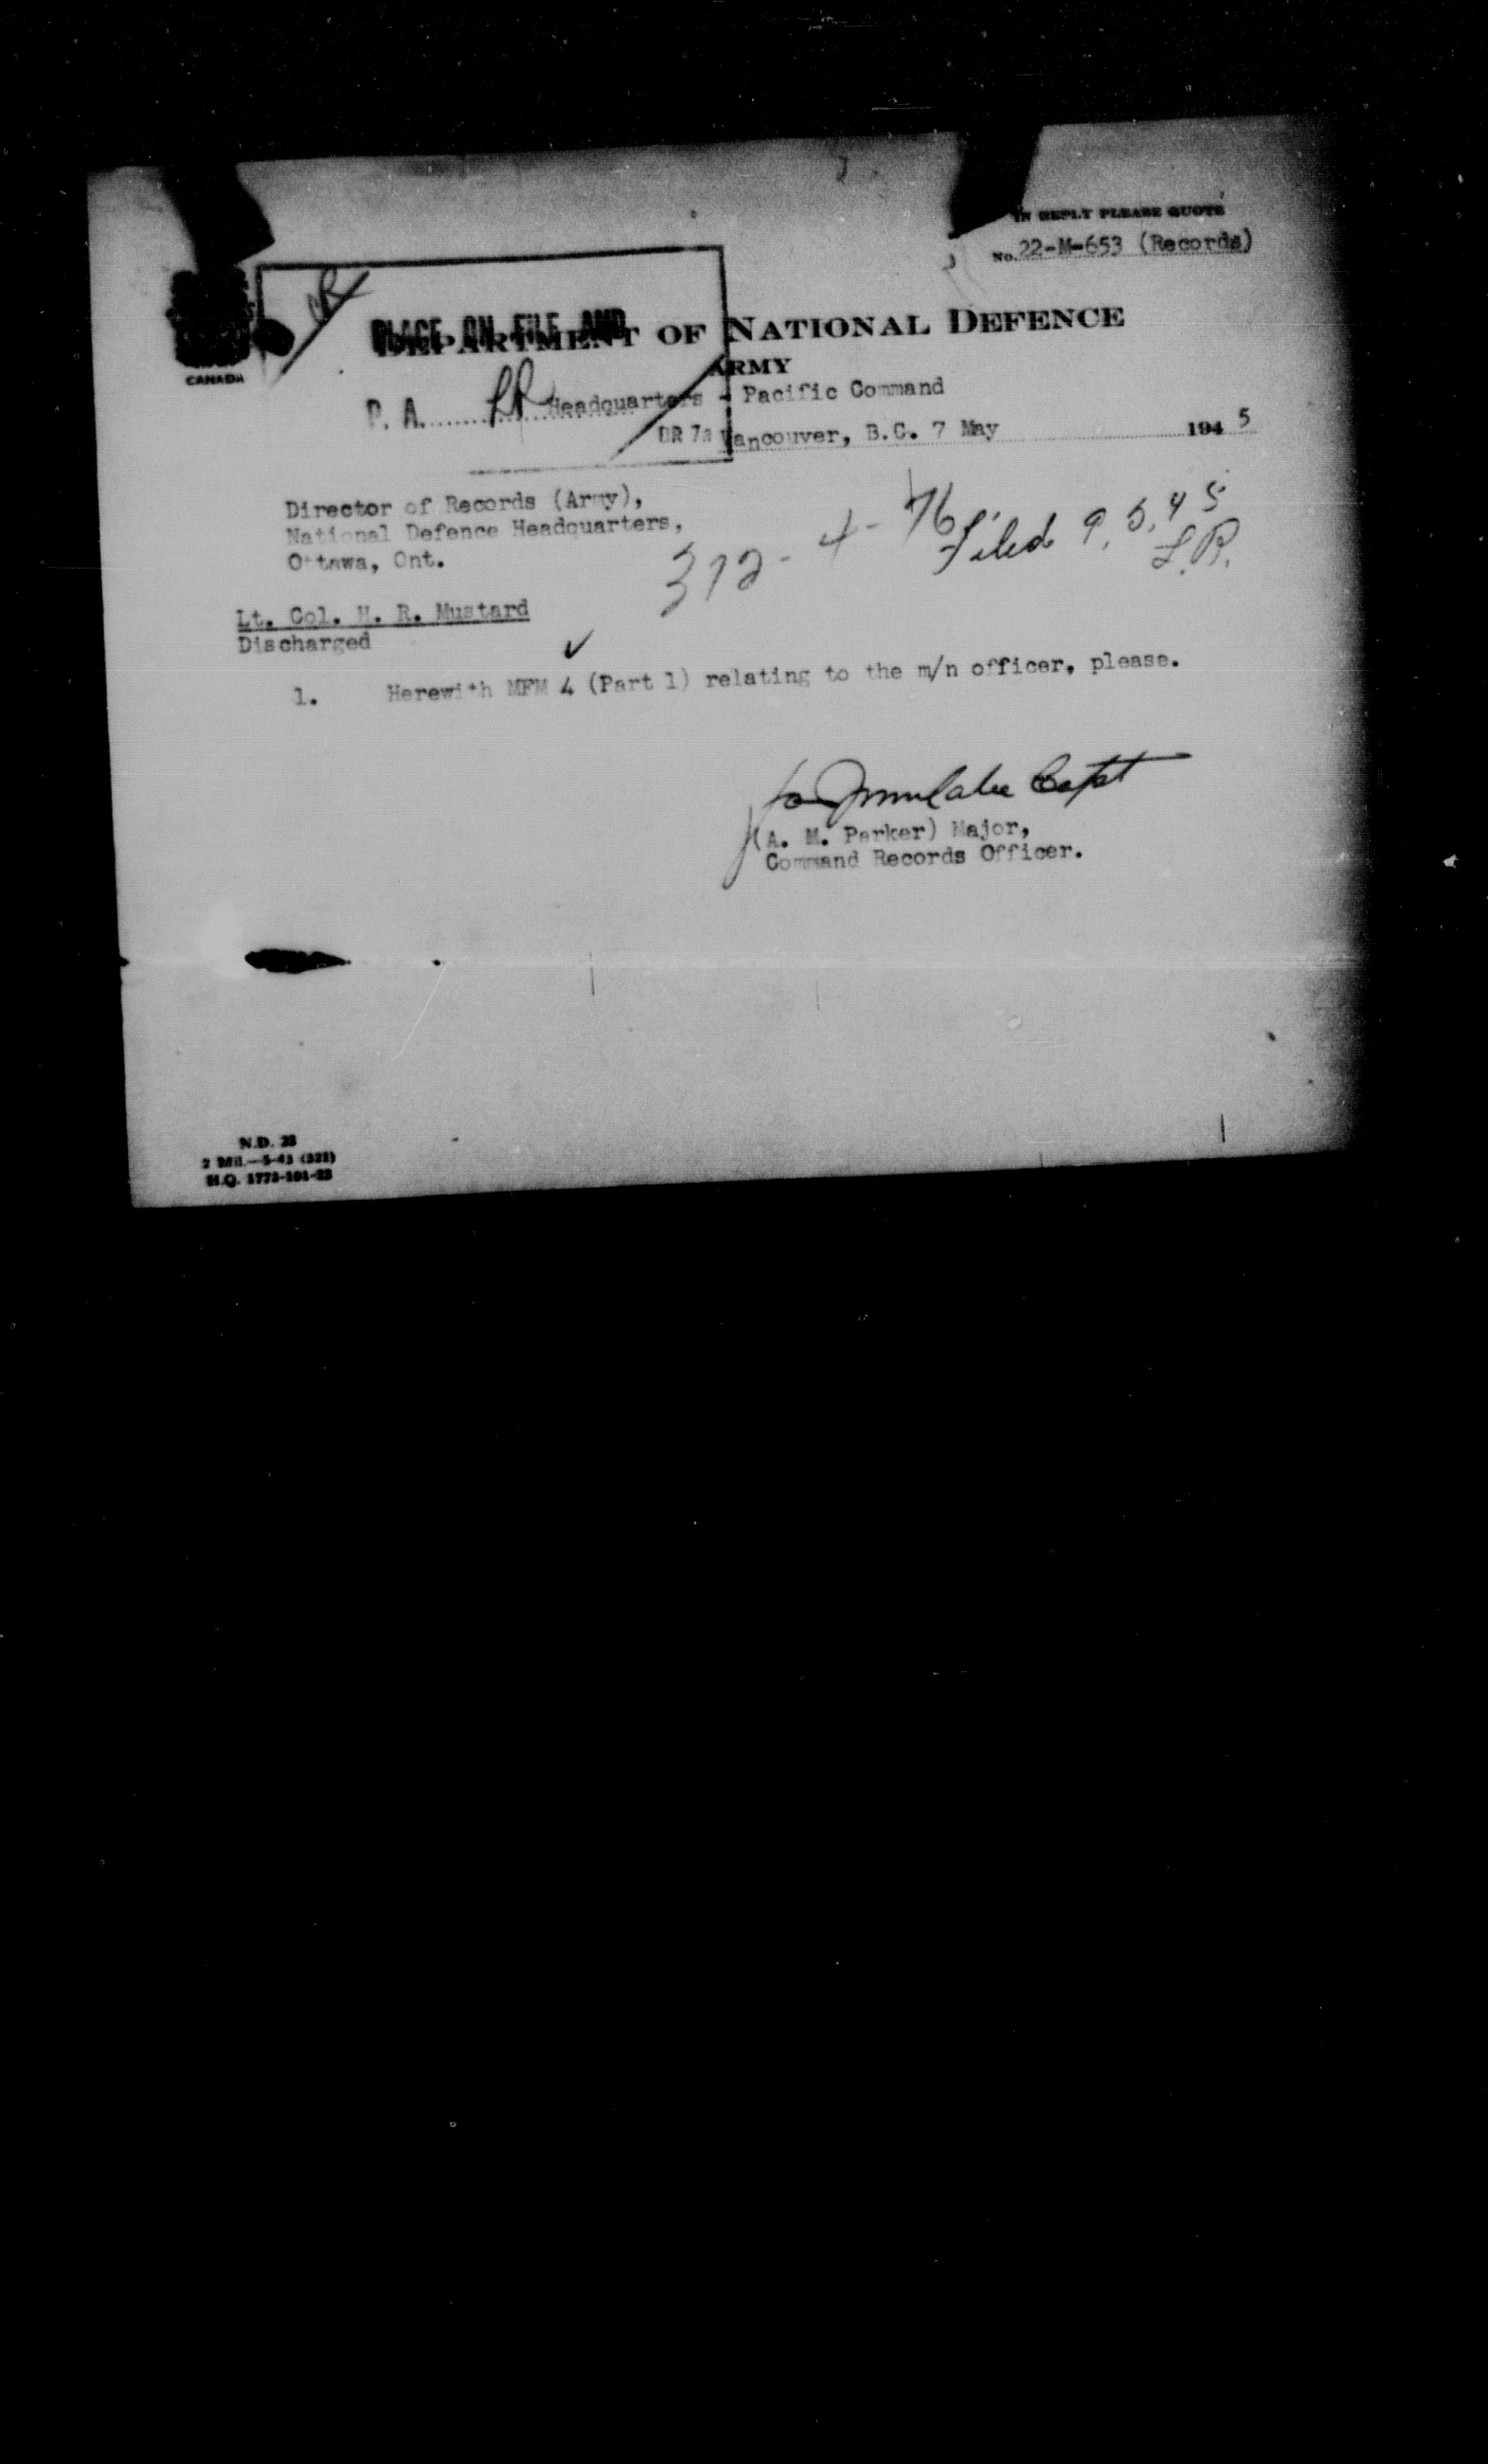 IN REPLY PLEASE QUOTE
No. 22-M-653 (Records)
CANADA
PLACE ON FILE AND
DEPARTMENT OF NATIONAL DEFENCE
ARMY
P. A. LR
Headquarters - Pacific Command
DR 7a
Vancouver, B.C. 7 May 1945
Director of Records (Army),
National Defence Headquarters,
Ottawa, Ont.
372-4-76
Filed 9.5.45
L.R.
Lt. Col. H. R. Mustard
Discharged
1. Herewith MFM 4 (Part 1) relating to the m/n officer, please.
Capt
(A. M. Parker) Major,
Command Records Officer.
N.D. 23
2 Mil.—5-43 (321)
H.Q. 1772-101-23